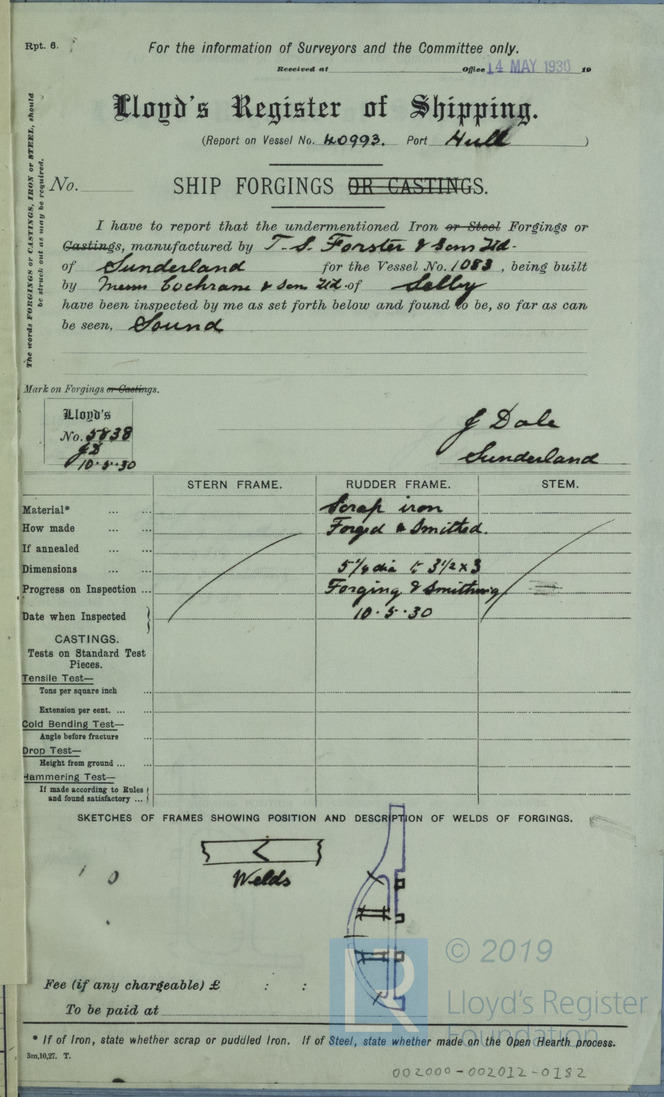 Rpt. 6.
For the information of Surveyors and the Committee only.
Received at Office 14 MAY 1930 19
Lloyd's Register of Shipping.
(Report on Vessel No. 40993. Port Hull )
The words FORGINGS or CASTINGS, IRON or STEEL, should
be struck out as may be required.
No.
SHIP FORGINGS OR CASTINGS.
I have to report that the undermentioned Iron or Steel Forgings or
Castings, manufactured by T. S. Forster & Sons Ltd.
of Sunderland for the Vessel No. 1083, being built
by Messrs Cochrane & Son Ltd. of Selby
have been inspected by me as set forth below and found to be, so far as can
be seen, Sound
Mark on Forgings or Castings.
Lloyd's
No. 5838
JD
10.5.30
J Dale
Sunderland
STERN FRAME. RUDDER FRAME. STEM.
Material* ... ... Scrap iron
How made ... ... Forged & Smithed.
If annealed ... ...
Dimensions ... ... dia to 3½ x 3
Progress on Inspection ... Forging & Smithing
Date when Inspected 10.5.30
CASTINGS.
Tests on Standard Test
Pieces.
Tensile Test—
Tons per square inch ...
Extension per cent. ... ...
Cold Bending Test—
Angle before fracture ...
Drop Test—
Height from ground ... ...
Hammering Test—
If made according to Rules
and found satisfactory ...
SKETCHES OF FRAMES SHOWING POSITION AND DESCRIPTION OF WELDS OF FORGINGS.
Welds
© 2019
LR
Lloyd's Register
Foundation
Fee (if any chargeable) £ : :
To be paid at
* If of Iron, state whether scrap or puddled Iron. If of Steel, state whether made on the Open Hearth process.
3m,10,27. T.
002000-002012-0182